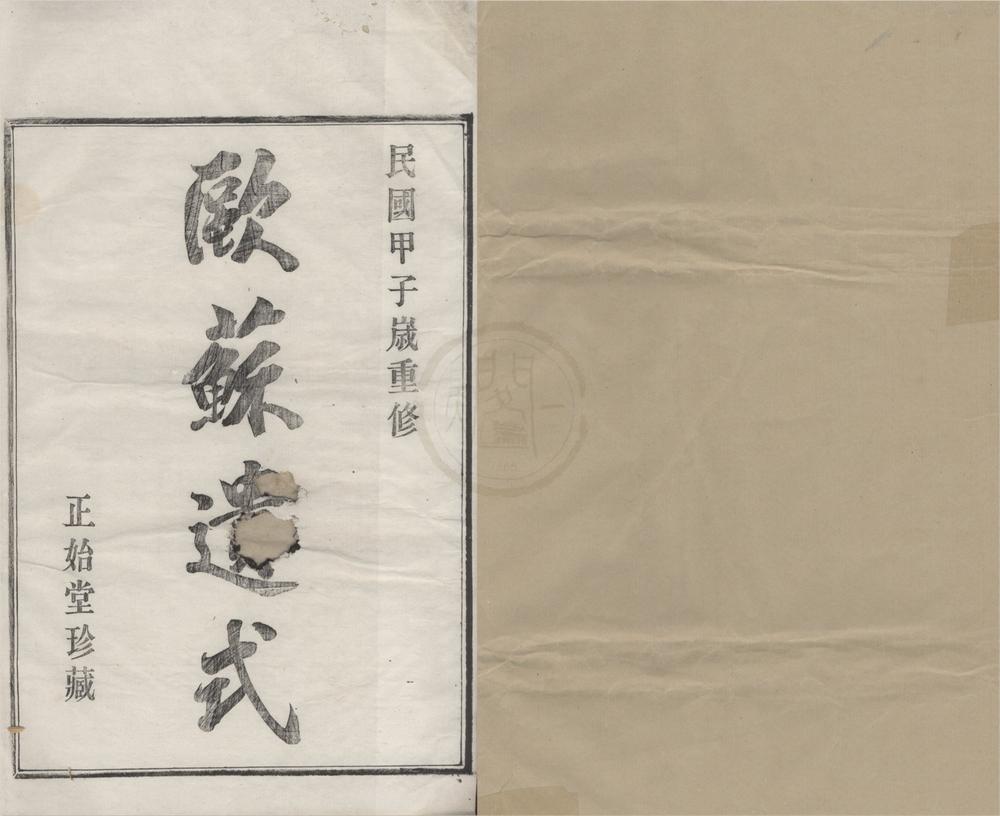 民國甲子歲重修
歐蘇遺式
正始堂珍藏